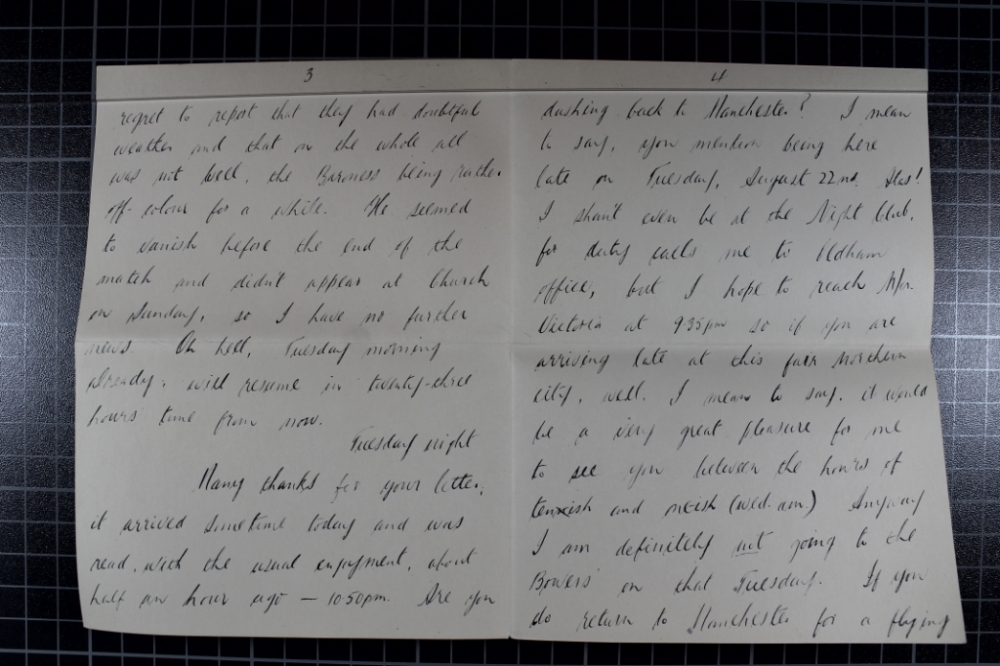 3
regret to report that they had doubtful
weather and that on the whole all
was not well, the Baroness being rather
off-colour for a while. He seemed
to vanish before the end of the
match and didn't appear at Church
on Sunday, so I have no further
news. Oh hell, Tuesday morning
already. will resume in twenty-three
hours time from now.
Tuesday night
Many thanks for your letter;
it arrived sometime today and was
read, with the usual enjoyment, about
half an hour ago — 10.50pm. Are you
4
dashing back to Manchester? I mean
to say, you mention being here
late on Tuesday, August 22nd. Alas!
I shan't even be at the Night Club,
for duty calls me to Oldham
office, but I hope to reach
Victoria at 9.35pm so if you are
arriving late at this northern
city, well. I mean to say, it would
be a very great pleasure for me
to see you between the hours of
tenish and (Wed. am.) Anyway
I am definitely not going to the
Bowers' on that Tuesday. If you
do return to Manchester for a flying